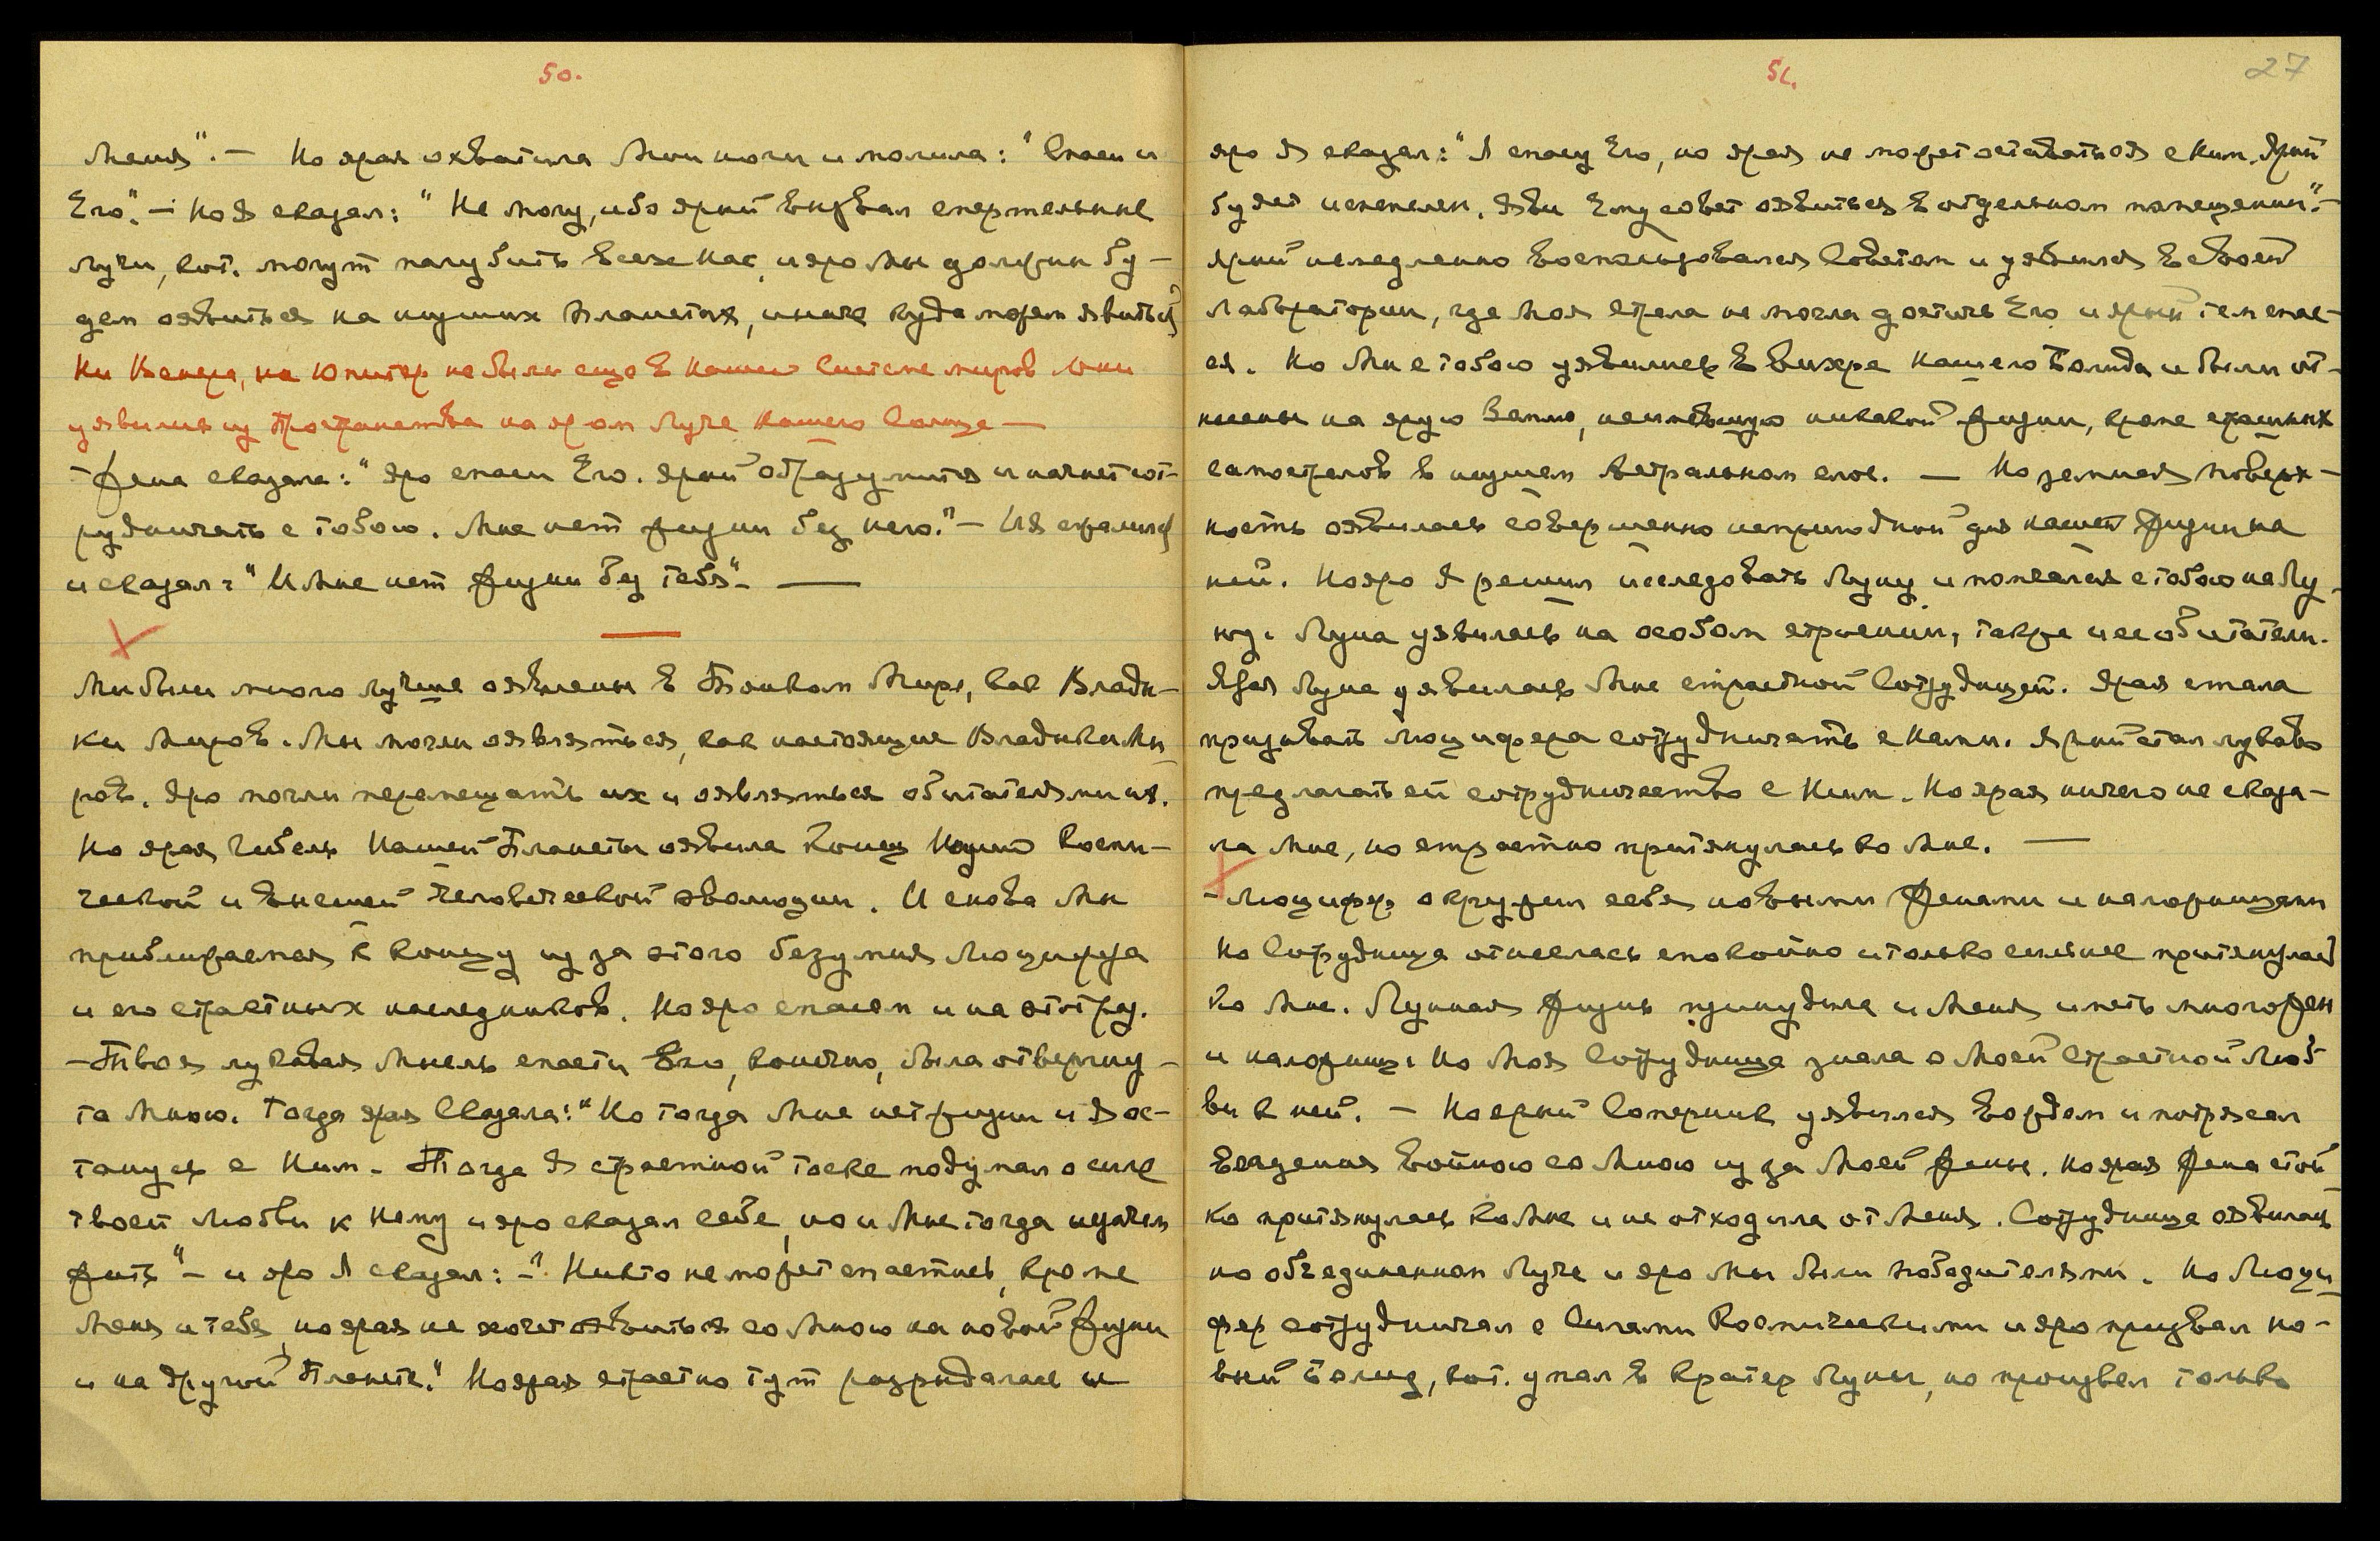 50.
меня". — Но ярая охватила Мои ноги и молила: "Спаси и
Его". — Но Я сказал: "Не могу, ибо ярый вызвал смертельные
лучи, кот. могут погубить всех нас, и яро Мы должны бу-
дем оявиться на низших планетах, иначе куда можем явиться
Ни Венера, ни Юпитер не были еще в нашей системе миров. Они
уявились из Пространства на яром Луче нашего Солнца —
— Жена сказала: "Яро спаси Его. Ярый образумится и начнет сот-
рудничать с тобою. Мне нет жизни без него." — И Я сжалился
и сказал: "И Мне нет жизни без тебя". —
Мы были много лучше оявлены в Тонком Мире, как Влады-
ки Миров. Мы могли оявляться, как настоящие Владыки Ми-
ров. Яро могли перемещать их и оявляться обитателями их.
Но ярая гибель Нашей Планеты оявила конец Нашей Косми-
ческой и внешней человеческой эволюции. И снова Мы
приближаемся к концу из за этого безумия Люцифера
и его страстных наследников. Но яро спасем и на этот раз.
— Твоя лукавая Мысль спасти Его, конечно, была отвергну-
та Мною. Тогда ярая сказала: "Но тогда Мне нет жизни и Я ос-
танусь с Ним. — Тогда Я в страстной тоске подумал о силе
твоей любви к Нему и яро сказал себе, но и Мне тогда незачем
жить" — и яро Я сказал: — "Никто не может спастись, кроме
Меня и тебя, но ярая не хочет оявиться со Мною на новой жизни
и на другой Планете." Но ярая страстно тут разрыдалась и
51.
27
яро Я сказал: "Я спасу Его, но ярая не может оставаться с Ним. Ярый
будет испепелен. Яви Ему совет оявиться в отдельном помещении". —
Ярый немедленно воспользовался Советом и уявился в своей
лаборатории, где Моя стрела не могла достичь Его и ярый тем спас-
ся. Но Мы с тобою уявились в вихре нашего Болида и были от-
несены на ярую Землю, неимевшую никакой жизни, кроме страшных
самострелов в низшем Астральном слое. — Но земная поверх-
ность оявилась совершенно непригодной для нашей жизни на
ней. Но яро Я решил исследовать Луну и помчался с тобою на Лу-
ну. Луна уявилась на особом строении, также и ее обитатели.
Ярая Луна уявилась Мне страстной Сотрудницей. Ярая стала
призывать Люцифера сотрудничать с Нами. Ярый стал лукаво
предлагать ей сотрудничество с Ним. Но ярая ничего не сказа-
ла Мне, но страстно притянулась ко Мне. —
— Люцифер окружил себя новыми женами и наложницами
Но Сотрудница отнеслась спокойно и только сильнее притянулась
ко Мне. Лунная жизнь принудила и Меня иметь много жен
и наложниц. Но Моя Сотрудница знала о Моей страстной Люб-
ви к ней. — Но ярый Соперник уявился вождем и потрясал
владения войною со Мною из за Моей жены. Но ярая жена стой-
ко притянулась ко Мне и не отходила от Меня. Сотрудница оявилась
на объединенном Луче и яро мы были победителями. Но Люци-
фер сотрудничал с Силами Космическими и яро призвал но-
вый болид, кот. упал в кратер Луны, но произвел только